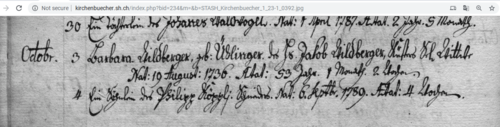 Not secure | kirchenbuecher.sh.ch/index.php?bid=234&m=&b=STASH_Kirchenbuecher_1_23-1_0392.jpg
30 Ein Töchterlein des Johannes Waldvogel. Nat: 1 April 1787. Aetat. 2 Jahr. 5 Monath.
Octobr. 3 Barbara Wildberger, geb: Üslinger. des Hs Jacob Wildberger, Küsters Sel. Wittib
Nat: 19 August: 1730. Aetat: 53 Jahr. 1 Monath. 2 Wochen
4 Ein Söhnlein des Philipp Schneiders. Nat: 6. 1789. Aetat: 4 Wochen.